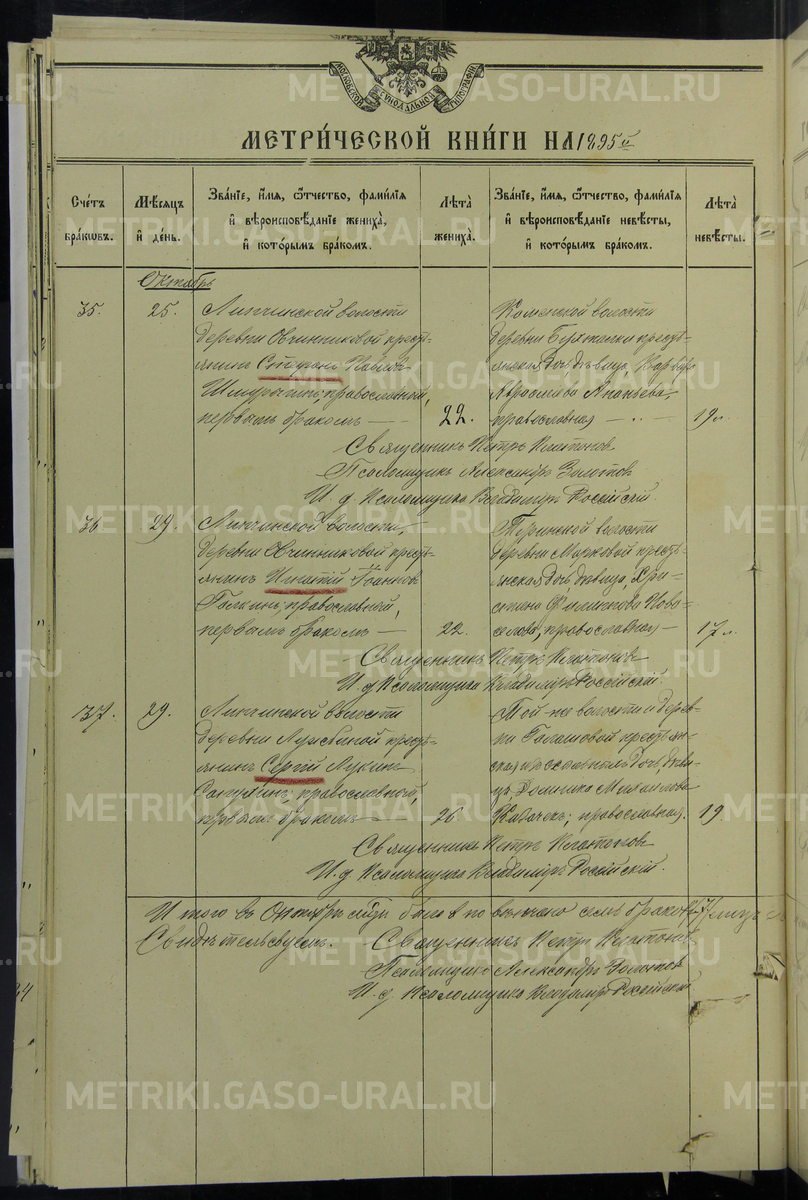 МОСКОВСКОЙ СѴНОДАЛЬНОЙ ТИПОГРАФІИ
МЕТРИ́ЧЕСКОЙ КНИ́ГИ НА 1895 й
Сче́тъ бра́кѡвъ.
Мѣ́сяцъ и҆ де́нь.
Зва́нїе, и҆́мя, ѻ҆́тчество, фами́лїя и҆ вѣроисповѣ́данїе жениха̀, и҆ кото́рымъ бра́комъ.
Лѣ́та жениха̀.
Зва́нїе, и҆́мя, ѻ҆́тчество, фами́лїя и҆ вѣроисповѣ́данїе невѣ́сты, и҆ кото́рымъ бра́комъ.
Лѣ́та невѣ́сты.
Октябрь
35. 25.
Липчинской волости
деревни Овчинниковой кресть-
янинъ Стефанъ
православный,
первымъ бракомъ —
22.
Каменской волости
деревни кресть-
янская дочь девица, Варвара
Ананьева,
православная —
19 л.
Священникъ Петръ Платонов
Псаломщикъ Александръ Золотов
И. д. Псаломщика Владимиръ Россійскій.
36. 29.
Липчинской волости,
деревни Овчинниковой кресть-
янинъ Игнатій Іоаннов
Галкинъ, православный,
первымъ бракомъ —
22.
волости
деревни Марковой кресть-
янская дочь девица, Хри-
стина Филиппова Ново-
селова, православная —
17 л.
Священникъ Петръ Платонов
И. д. Псаломщика Владиміръ Россійскій.
37. 29.
Липчинской волости
деревни кресть-
янинъ Сергій Лукин
православный,
первымъ бракомъ —
26
Той-же волости и дерев-
ни кресть-
дочь, деви-
ца Михаилова
православная.
19.
Священникъ Петръ Платонов
И. д. Псаломщика Владиміръ Россійскій.
Итого въ Октябрѣ м-цѣ было повенчано семь браковъ /7/
Свидѣтельствуемъ. Священникъ Петръ Платонов
Псаломщикъ Александръ Золотов
И. д. Псаломщика Владиміръ Россійскій
METRIKI.GASO-URAL.RU